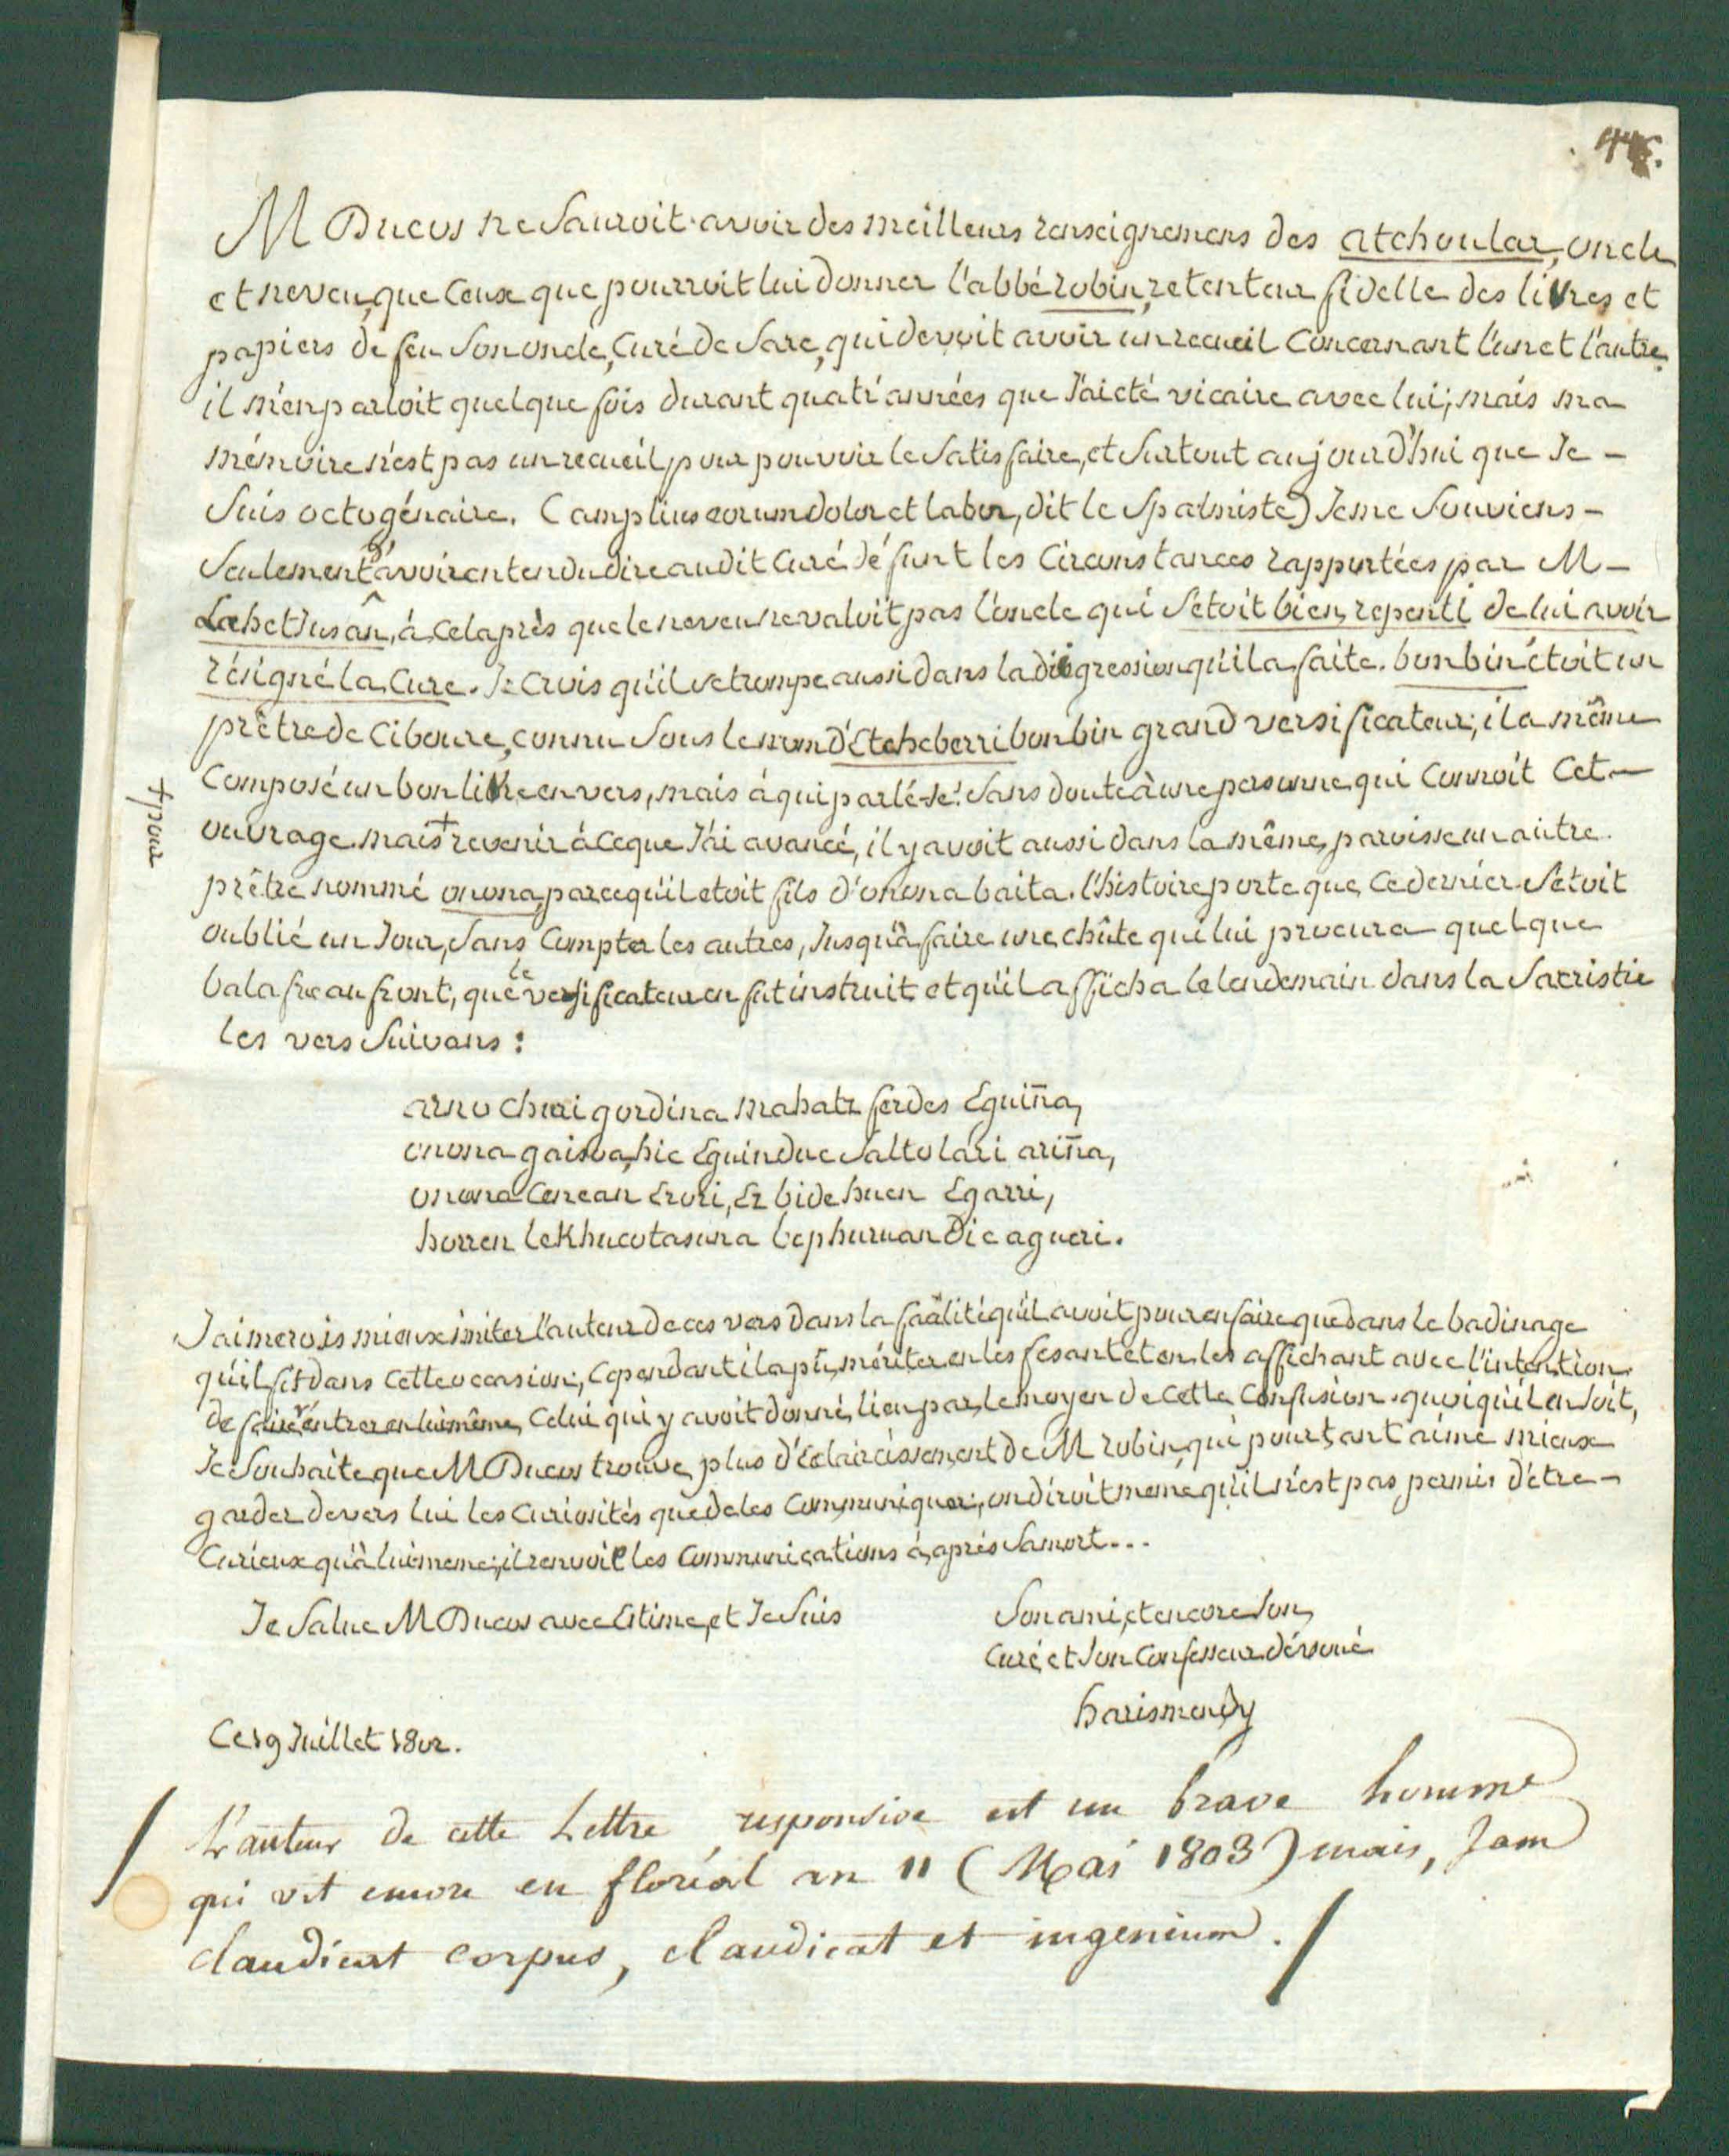 M Ducos ne Sauroit avoir des meilleurs renseignemens des atchoular, oncle
et neveu, que Ceux que pourroit lui donner l'abbé robin, retenteur fidelle des livres et
papiers de feu Son oncle, Curé de Sare, qui devoit avoir un recueil Concernant l'un et l'autre.
il m'en parloit quelque fois durant quatr'années que J'ai eté vicaire avec lui; mais ma
mémoire n'est pas un recueil, pour pouvoir le Satisfaire, et Surtout aujourd'hui que Je -
Suis octogénaire. (amplius eorum dolor et labor, dit le Spalmiste) Je me Souviens -
Seulement d'avoir entendu dire audit Curé défunt les Circonstances rapportées par M -
LahetJusân, à, Cela près que le neveu ne valoit pas l'oncle qui S'etoit bien, repenti de lui avoir
résigné la, Cure. Je Crois qu'il se trompe aussi dans la digression qu'il a faite. bonbin étoit un
prêtre de Ciboure, connu Sous le nom d'Etcheberri bonbin grand versificateur; il a même
Composé un bon livre en vers, mais à qui parlé-Je! Sans doute à une personne qui Connoit Cet -
ouvrage. mais + revenir à Ce que J'ai avancé, il y avoit aussi dans la même, paroisse un autre
+ pour
prêtre nommé onona, parcequ'il etoit fils d'onona baita. l'histoire porte que, Ce dernier S'etoit
oublié un Jour, Sans Compter les autres, Jusqu'à faire une chûte qui lui procura quelque
balafre au front, que le versificateur en fut instruit et qu'il afficha le lendemain dans la Sacristie
les vers Suivans:
arno churi gordina mahatz ferdes Eguiña,
onona gaisoa, hic Eguinduc Saltolari ariña,
onona Cenean Erori, Ez bide huen Egarri,
horren lekhucotasuna bephuruan dic agueri.
J'aimerois mieux imiter l'auteur de ces vers dans la facilité qu'il avoit pour en faire que dans le badinage
qu'il fit dans cette occasion; Cependant il a pû, mériter en les fesant et en, les affichant avec l'intention
de faire rentrer en lui même, Celui qui y avoit donné, lieu par, le moyen de Cette Confusion. quoiqu'il en Soit,
Je Souhaite que M Ducos trouve, plus d'éclaircissement de M robin, qui pourtant aime mieux
garder devers lui les Curiosités que de les Communiquer; on diroit meme qu'il n'est pas permis d'etre -
Curieux qu'à lui meme; il renvoie les Communications à, après Sa mort...
Je Salue M Ducos avec Estime, et Je Suis
Son ami, et encore Son
Curé, et Son Confesseur dévoué
harismendy
Ce 19 Juillet 1802.
L'auteur de cette Lettre responsive est un brave homme
qui vit encore en floréal an 11 (Mai 1803) mais, Jam
claudicat corpus, claudicat et ingenium.